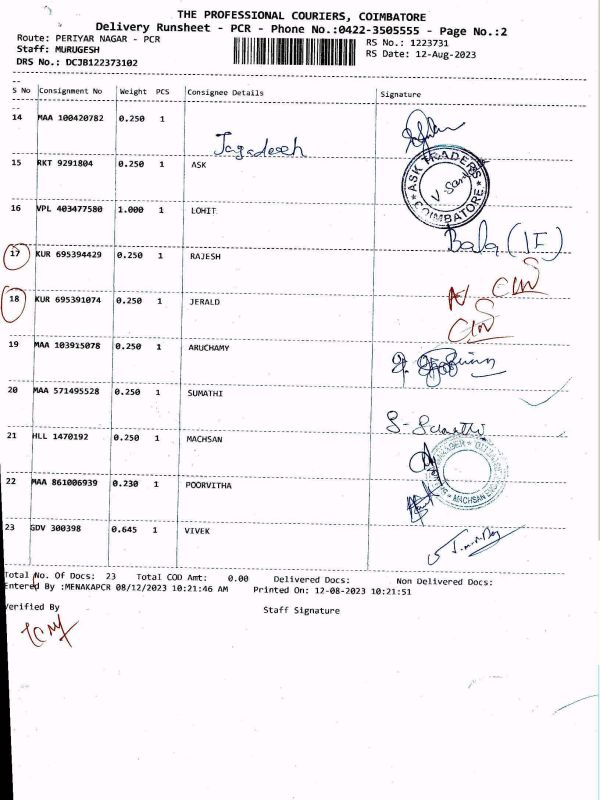 THE PROFESSIONAL COURIERS, COIMBATORE
Delivery Runsheet - PCR - Phone No.:0422-3505555 - Page No.:2
Route: PERIYAR NAGAR - PCR
RS No.: 1223731
Staff: MURUGESH
RS Date: 12-Aug-2023
DRS No.: DCJB122373102
S No Consignment No Weight PCS Consignee Details Signature
14 MAA 100420782 0.250 1
Jagadeesh
15 RKT 9291804 0.250 1 ASK
ASK TRADERS
COIMBATORE
16 VPL 403477580 1.000 1 LOHIT
Bala (IF)
17 KUR 695394429 0.250 1 RAJESH
18 KUR 695391074 0.250 1 JERALD
19 MAA 103915078 0.250 1 ARUCHAMY
20 MAA 571495528 0.250 1 SUMATHI
21 HLL 1470192 0.250 1 MACHSAN
MACHSAN
22 MAA 861006939 0.230 1 POORVITHA
23 GDV 300398 0.645 1 VIVEK
Total No. Of Docs: 23 Total COD Amt: 0.00 Delivered Docs: Non Delivered Docs:
Entered By :MENAKAPCR 08/12/2023 10:21:46 AM Printed On: 12-08-2023 10:21:51
Verified By
Staff Signature